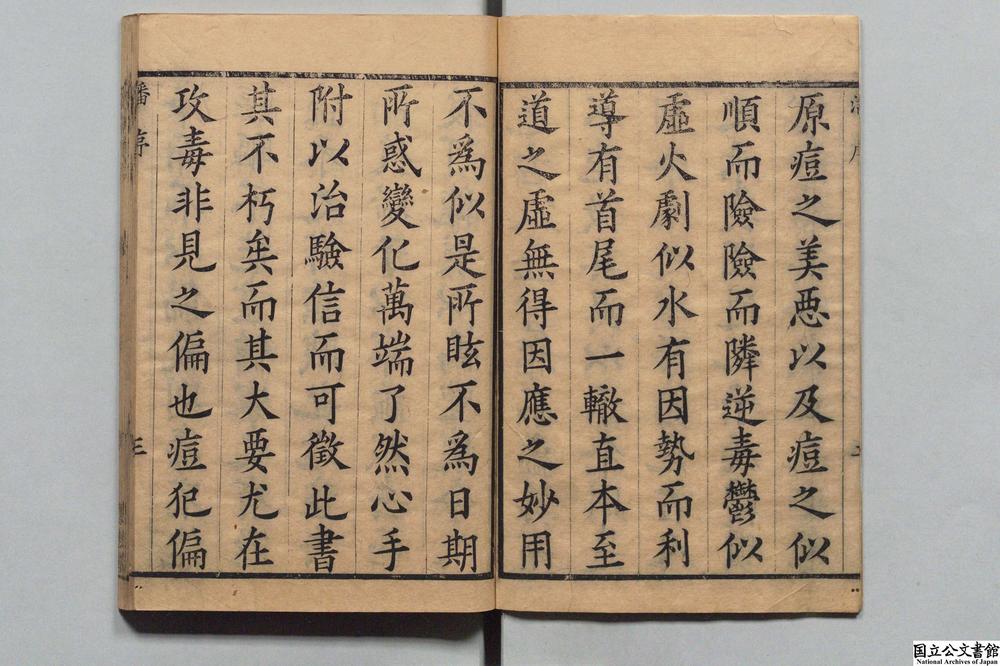 原痘之美惡以及痘之似
順而險險而隣逆毒鬱似
虛火劇似水有因勢而利
導有首尾而一轍直本至
道之虛無得因應之妙用
不爲似是所眩不爲日期
所惑變化萬端了然心手
附以治驗信而可徵此書
其不朽矣而其大要尤在
攻毒非見之偏也痘犯偏
序
三
国立公文書館
National Archives of Japan